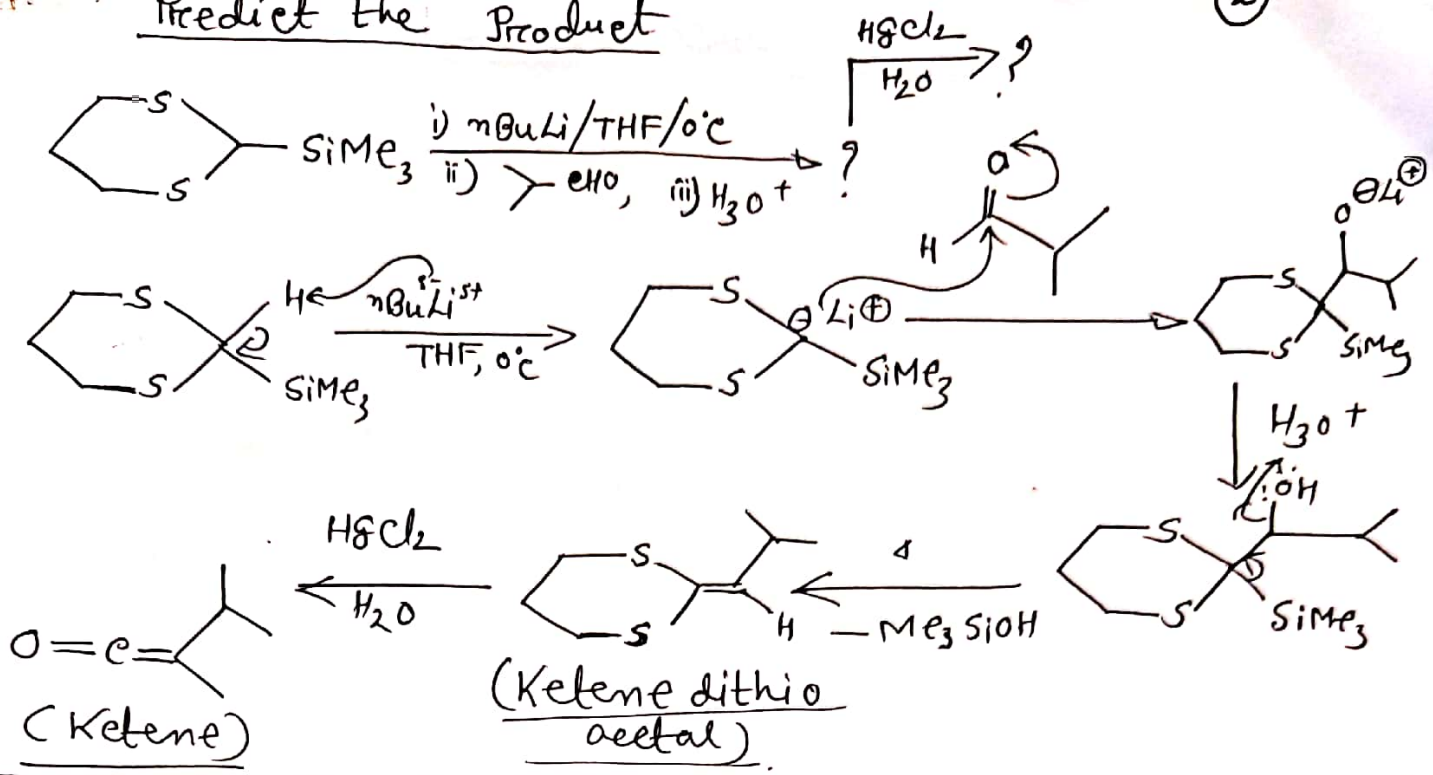 Predict the Product
2
HgCl2
H2O
?
S
S
SiMe3
i) nBuLi/THF/0°C
ii) CHO, iii) H3O+
?
O
H
S
S
H
SiMe3
nBuLi
δ- δ+
THF, 0°C
S
S
⊖ Li⊕
SiMe3
O⊖Li⊕
S
S
SiMe3
H3O+
:ÖH
S
S
SiMe3
Δ
– Me3SiOH
S
S
H
(Ketene dithio
acetal).
HgCl2
H2O
O=C=
(Ketene)